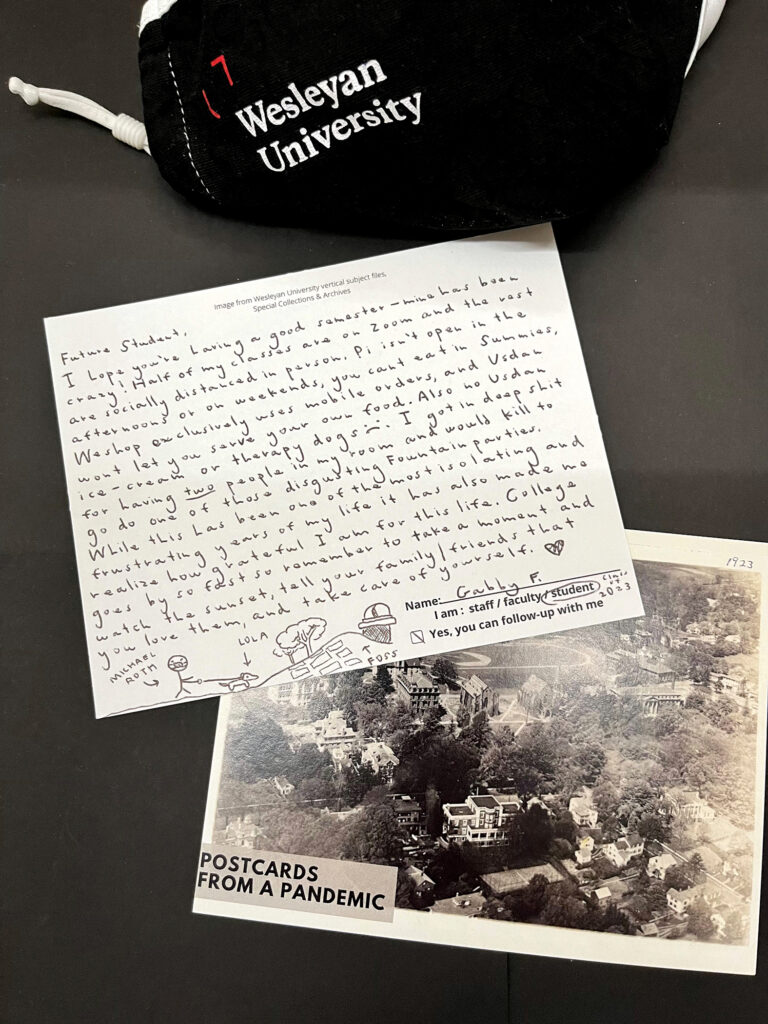 Wesleyan
University
Image from Wesleyan University vertical subject files,
Special Collections & Archives
Future Student,
I hope you're having a good semester - mine has been
crazy! Half of my classes are on Zoom and the rest
are socially distanced in person. Pi isn't open in the
afternoons or on weekends, you cant eat in Summies,
Weshop exclusively uses mobile orders, and Usdan
wont let you serve your own food. Also no Usdan
ice-cream or therapy dogs :(. I got in deep shit
for having two people in my room and would kill to
go do one of those disgusting Fountain parties.
While this has been one of the most isolating and
frustrating years of my life it has also made me
realize how grateful I am for this life. College
goes by so fast so remember to take a moment and
watch the sunset, tell your family/friends that
you love them, and take care of yourself. ♡
Name: Gabby F.
I am: staff / faculty / student
Class
of
2023
Yes, you can follow-up with me
MICHAEL
ROTH
LOLA
FOSS
1923
POSTCARDS
FROM A PANDEMIC